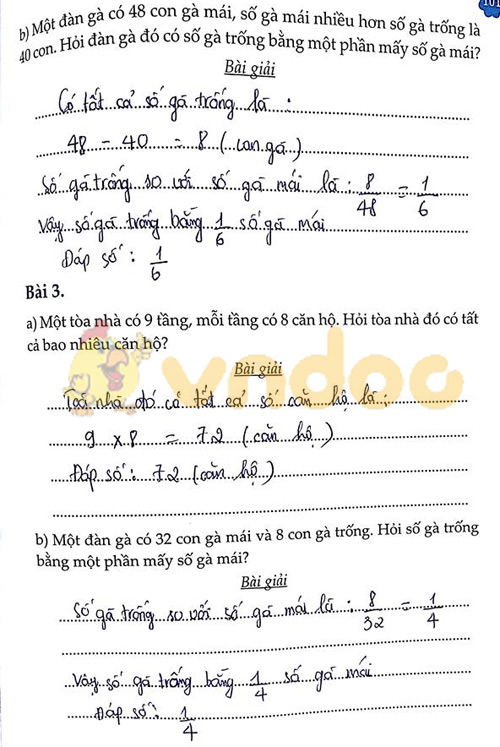 101
b) Một đàn gà có 48 con gà mái, số gà mái nhiều hơn số gà trống là
40 con. Hỏi đàn gà đó có số gà trống bằng một phần mấy số gà mái?
Bài giải
Có tất cả số gà trống là :
48 - 40 = 8 (con gà)
Số gà trống so với số gà mái là : 8/48 = 1/6
Vậy số gà trống bằng 1/6 số gà mái
Đáp số : 1/6
Bài 3.
a) Một tòa nhà có 9 tầng, mỗi tầng có 8 căn hộ. Hỏi tòa nhà đó có tất
cả bao nhiêu căn hộ?
vndoc
Bài giải
Toà nhà đó có tất cả số căn hộ là :
9 x 8 = 72 (căn hộ)
Đáp số : 72 (căn hộ)
b) Một đàn gà có 32 con gà mái và 8 con gà trống. Hỏi số gà trống
bằng một phần mấy số gà mái?
Bài giải
Số gà trống so với số gà mái là : 8/32 = 1/4
Vậy số gà trống bằng 1/4 số gà mái
Đáp số : 1/4